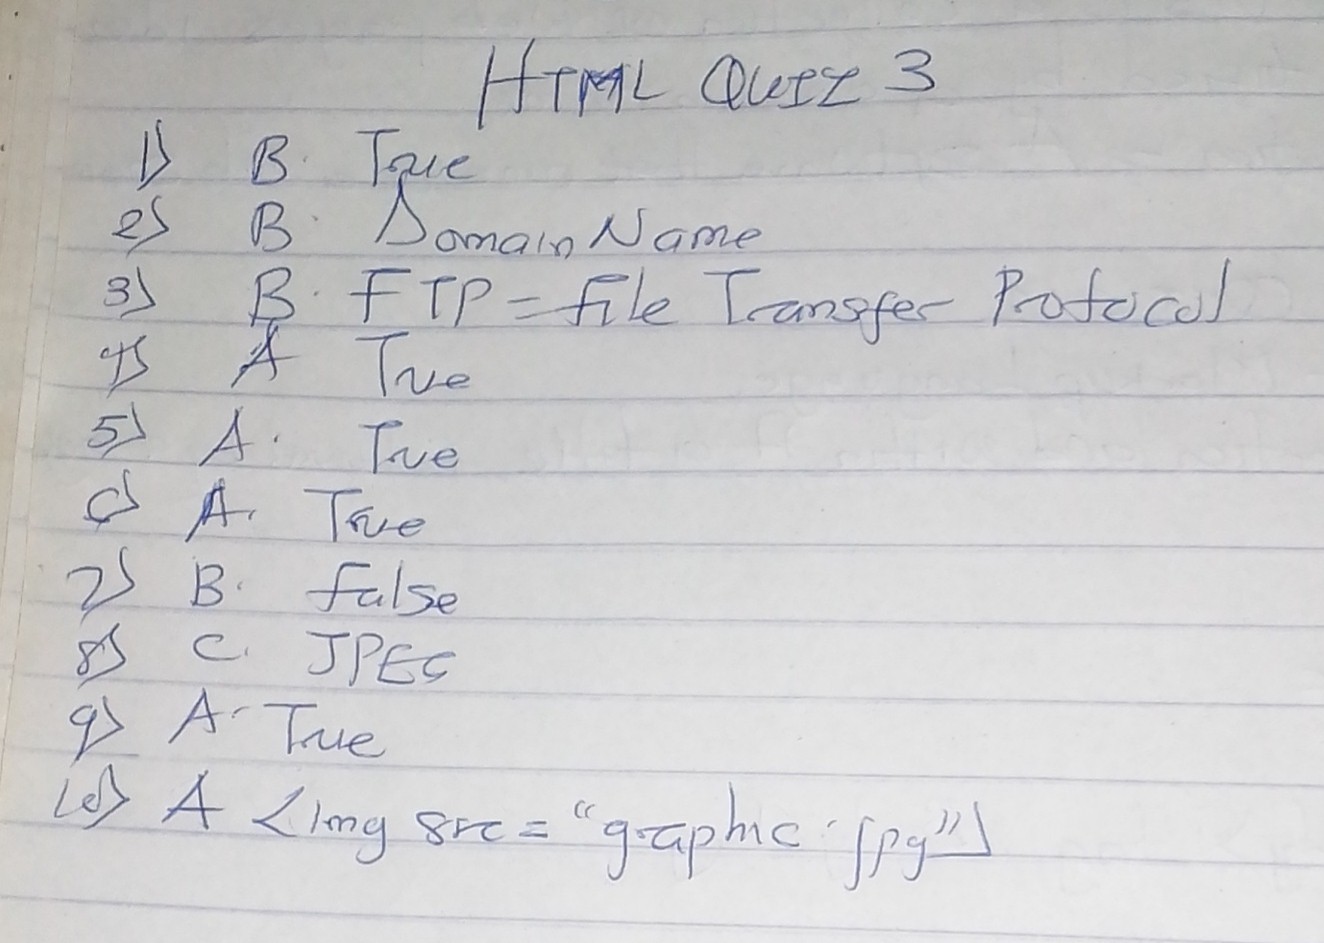 HTML QUIZ 3
1) B. True
2) B. Domain Name
3) B. FTP = file Transfer Protocol
4) A True
5) A. True
6) A. True
7) B. false
8) C. JPEG
9) A. True
10) A <img src = "graphic.jpg">